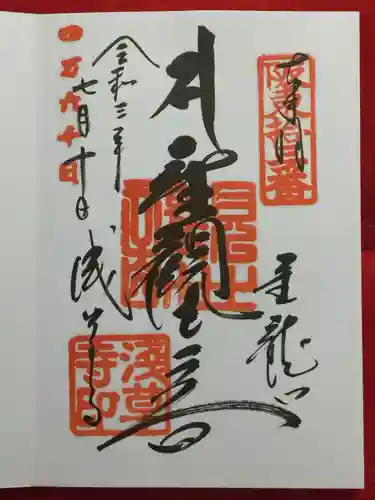 奉拝
阪東拾三番
金龍山
聖観世音
令和三年
七月十日
浅草寺
淺草寺印
四万六千日